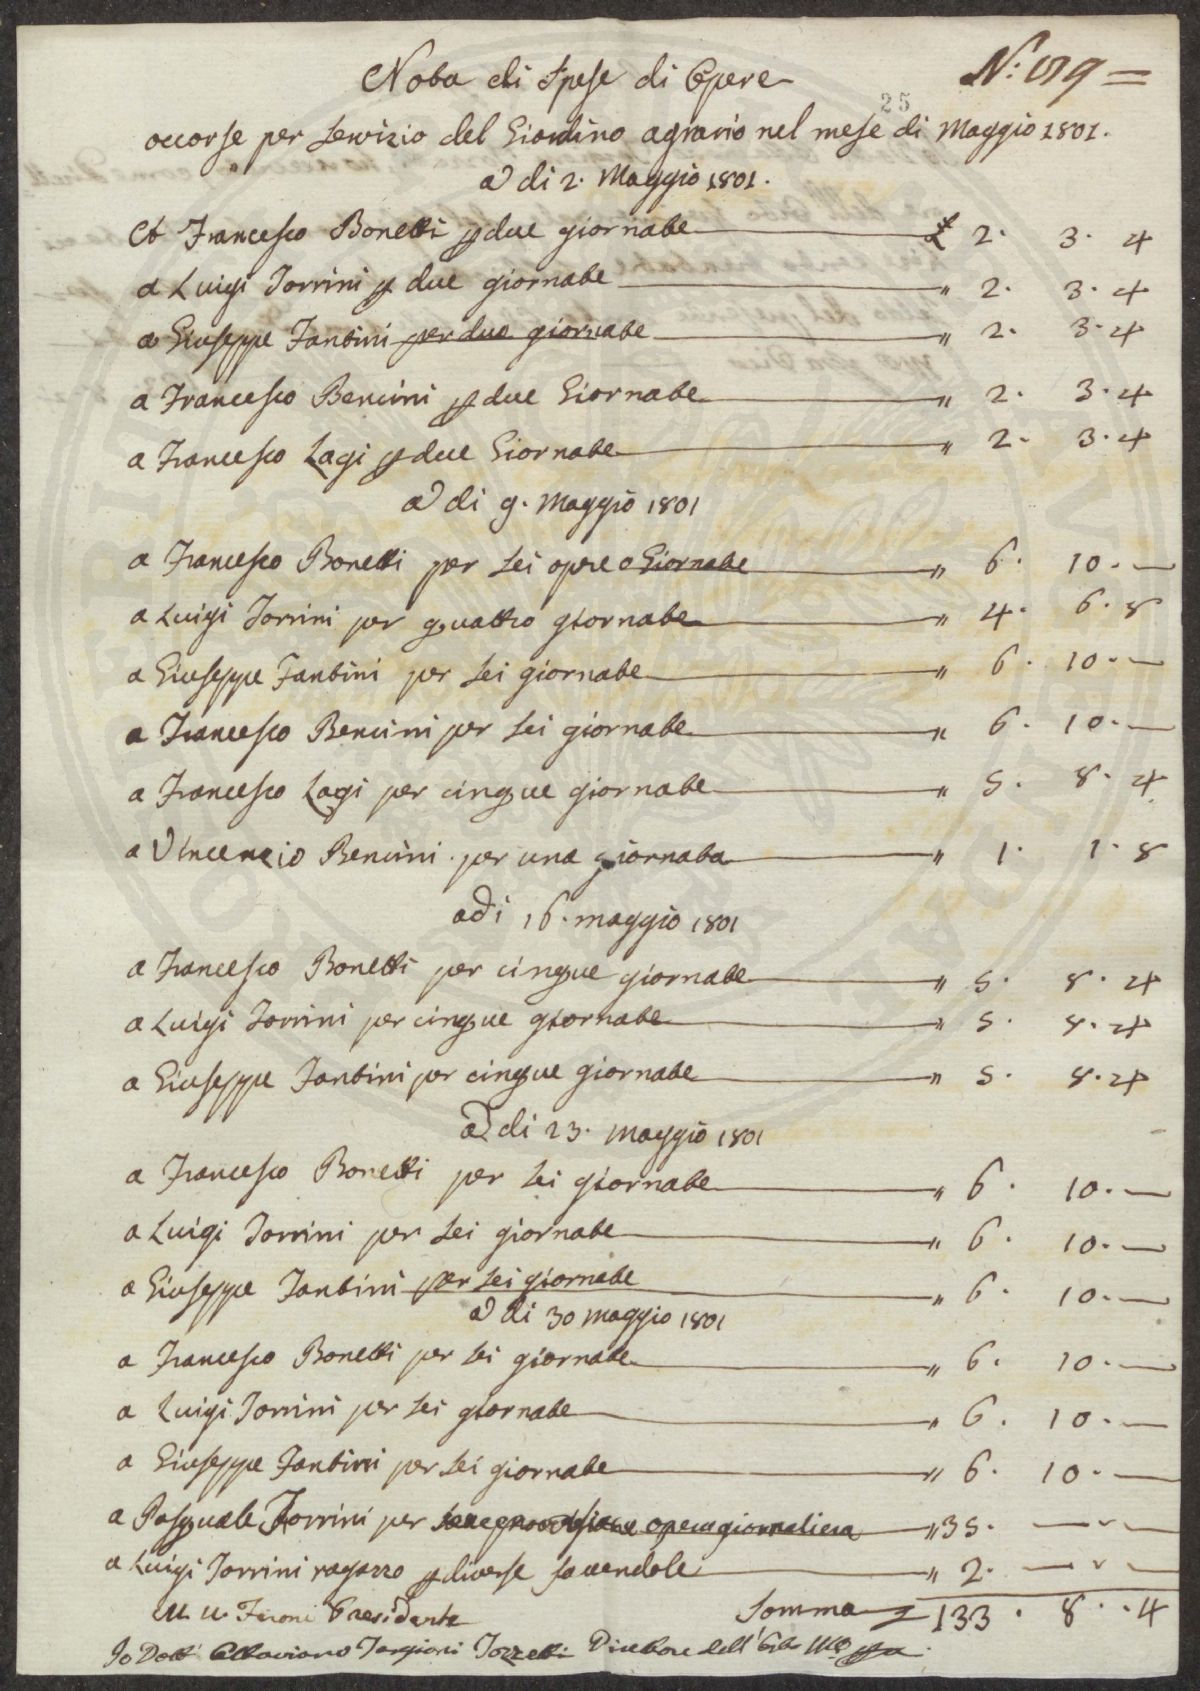 Nota di Spese di Opere
N:
25
occorse per servizio del Giardino agrario nel mese di Maggio 1801.
A di 2. Maggio 1801.
A Francesco Bonetti p due giornate £ 2. 3. 4
a Luigi Torrini p due giornate " 2. 3. 4
a Giuseppe Fantini per due giornate " 2. 3. 4
a Francesco Bencini p due Giornate " 2. 3. 4
a Francesco Lagi p due Giornate " 2. 3. 4
A di 9. Maggio 1801
a Francesco Bonetti per sei opere o Giornate " 6. 10. —
a Luigi Torrini per quattro giornate " 4. 6. 8
a Giuseppe Fantini per sei giornate " 6. 10. —
a Francesco Bencini per sei giornate " 6. 10. —
a Francesco Lagi per cinque giornate " 5. 8. 4
a Vincenzio Bencini per una giornata " 1. 1. 8
adi 16. maggio 1801
a Francesco Bonetti per cinque giornate " 5. 8. 4
a Luigi Torrini per cinque giornate " 5. 8. 4
a Giuseppe Fantini per cinque giornate " 5. 8. 4
A di 23. Maggio 1801
a Francesco Bonetti per sei giornate " 6. 10. —
a Luigi Torrini per sei giornate " 6. 10. —
a Giuseppe Fantini per sei giornate " 6. 10. —
A di 30 Maggio 1801
a Francesco Bonetti per sei giornate " 6. 10. —
a Luigi Torrini per sei giornate " 6. 10. —
a Giuseppe Fantini per sei giornate " 6. 10. —
a Pasquale Torrini per opera giornaliera " 35. — " —
a Luigi Torrini ragazzo p diverse faccendole " 2. — " —
Feroni Presidente
Somma £ 133. 8. 4
Io Dott Ottaviano Targioni Tozzetti Direttore dell'Orto